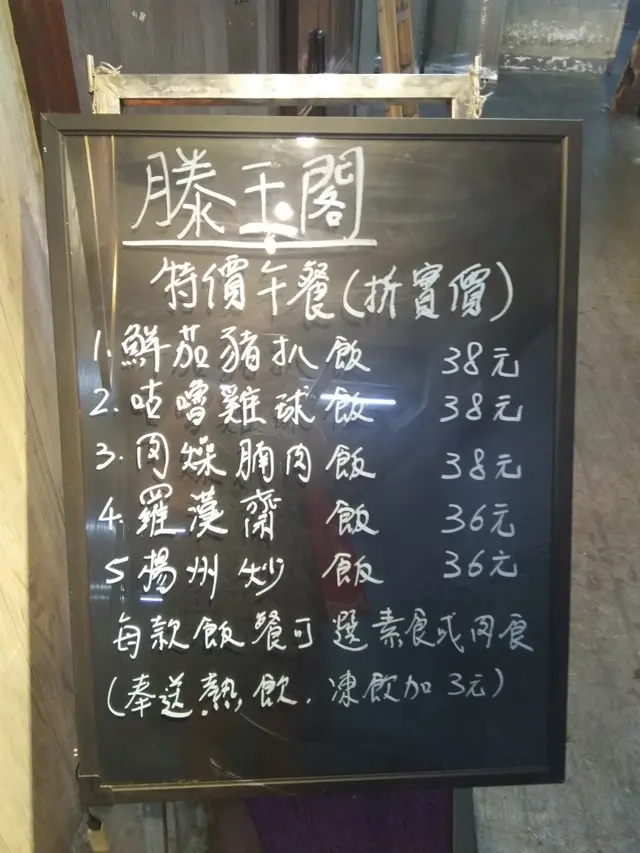 滕王閣
特價午餐(折實價)
1. 鮮茄豬扒飯 38元
2. 咕嚕雞球飯 38元
3. 肉燥腩肉飯 38元
4. 羅漢齋飯 36元
5 楊州炒飯 36元
每款飯餐可選素食或肉食
(奉送熱飲，凍飲加3元)